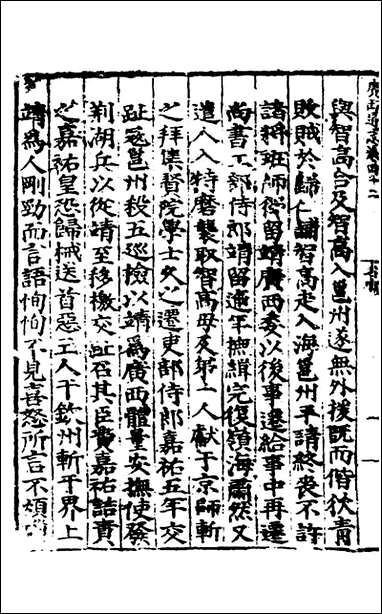 廣西通志卷四十二
與智高合及智高入邕州遂無外援旣而偕狄青
敗賊於歸仁鋪智高走入海邕州平請終喪不許
諸將班師仍留靖廣西委以後事遷給事中再遷
尚書工部侍郎靖留逾年撫緝完復嶺海肅然又
遣人入特磨襲取智高母及弟一人獻于京師斬
之拜集賢院學士久之遷吏部侍郎嘉祐五年交
趾寇邕州殺五巡檢以靖爲廣西體量安撫使發
荆湖兵以從靖至移檄交趾召其臣費嘉祐詰責
之嘉祐皇恐歸械送首惡五人于欽州斬于界上
靖爲人剛勁而言語恂恂不見喜怒所言不煩